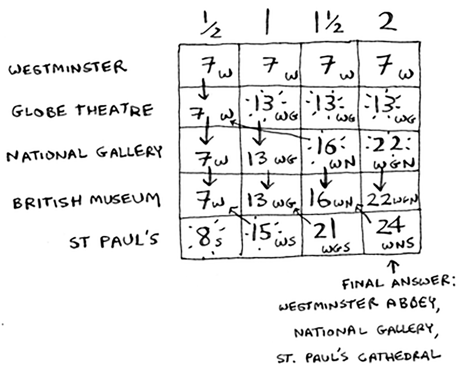 ½ 1 1½ 2
WESTMINSTER 7 W 7 W 7 W 7 W
GLOBE THEATRE 7 W 13 WG 13 WG 13 WG
NATIONAL GALLERY 7 W 13 WG 16 WN 22 WGN
BRITISH MUSEUM 7 W 13 WG 16 WN 22 WGN
ST PAUL'S 8 S 15 WS 21 WGS 24 WNS
FINAL ANSWER:
WESTMINSTER ABBEY,
NATIONAL GALLERY,
ST. PAUL'S CATHEDRAL